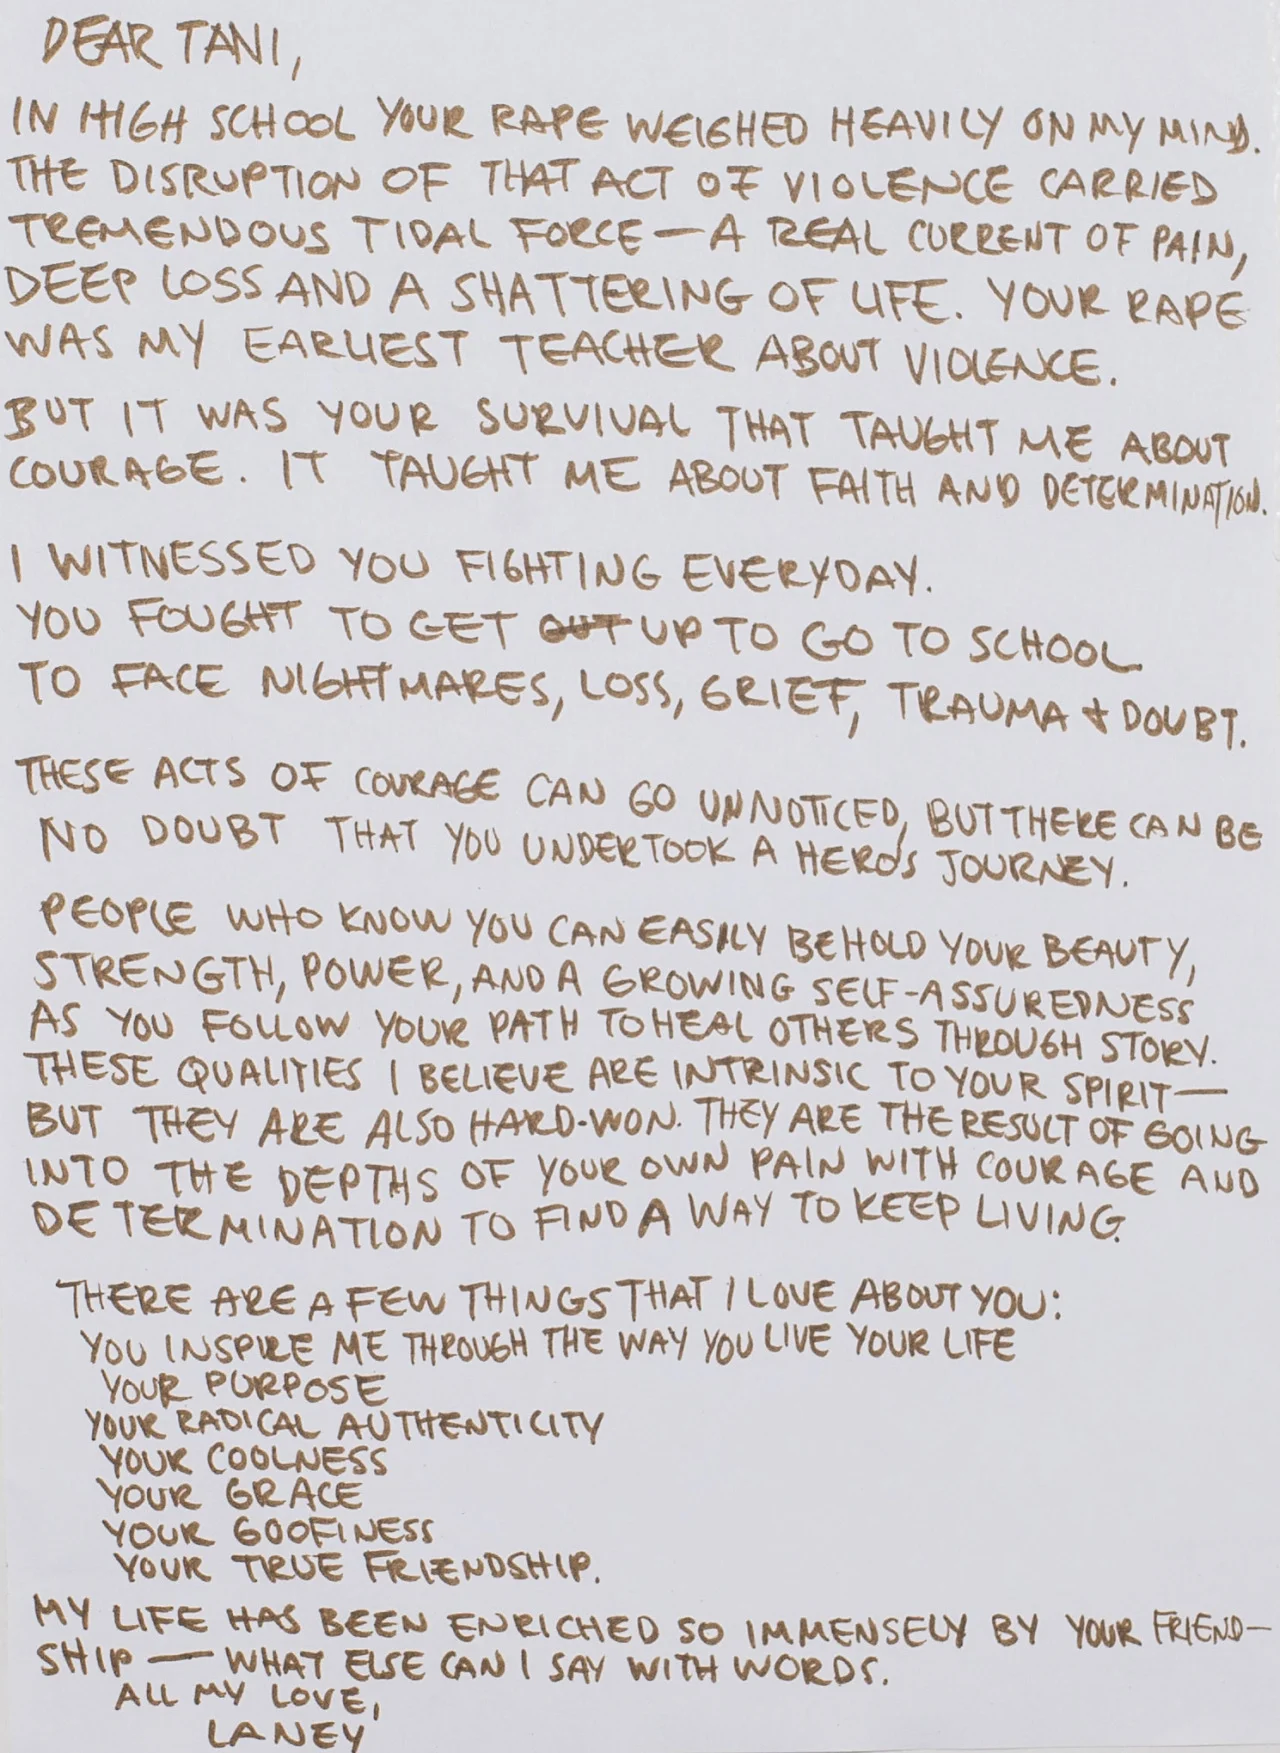 DEAR TANI,
IN HIGH SCHOOL YOUR RAPE WEIGHED HEAVILY ON MY MIND.
THE DISRUPTION OF THAT ACT OF VIOLENCE CARRIED
TREMENDOUS TIDAL FORCE — A REAL CURRENT OF PAIN,
DEEP LOSS AND A SHATTERING OF LIFE. YOUR RAPE
WAS MY EARLIEST TEACHER ABOUT VIOLENCE.
BUT IT WAS YOUR SURVIVAL THAT TAUGHT ME ABOUT
COURAGE. IT TAUGHT ME ABOUT FAITH AND DETERMINATION.
I WITNESSED YOU FIGHTING EVERYDAY.
YOU FOUGHT TO GET OUT UP TO GO TO SCHOOL
TO FACE NIGHTMARES, LOSS, GRIEF, TRAUMA & DOUBT.
THESE ACTS OF COURAGE CAN GO UNNOTICED, BUT THERE CAN BE
NO DOUBT THAT YOU UNDERTOOK A HERO'S JOURNEY.
PEOPLE WHO KNOW YOU CAN EASILY BEHOLD YOUR BEAUTY,
STRENGTH, POWER, AND A GROWING SELF-ASSUREDNESS
AS YOU FOLLOW YOUR PATH TO HEAL OTHERS THROUGH STORY.
THESE QUALITIES I BELIEVE ARE INTRINSIC TO YOUR SPIRIT —
BUT THEY ARE ALSO HARD-WON. THEY ARE THE RESULT OF GOING
INTO THE DEPTHS OF YOUR OWN PAIN WITH COURAGE AND
DETERMINATION TO FIND A WAY TO KEEP LIVING.
THERE ARE A FEW THINGS THAT I LOVE ABOUT YOU:
YOU INSPIRE ME THROUGH THE WAY YOU LIVE YOUR LIFE
YOUR PURPOSE
YOUR RADICAL AUTHENTICITY
YOUR COOLNESS
YOUR GRACE
YOUR GOOFINESS
YOUR TRUE FRIENDSHIP.
MY LIFE HAS BEEN ENRICHED SO IMMENSELY BY YOUR FRIEND-
SHIP — WHAT ELSE CAN I SAY WITH WORDS.
ALL MY LOVE,
LANEY